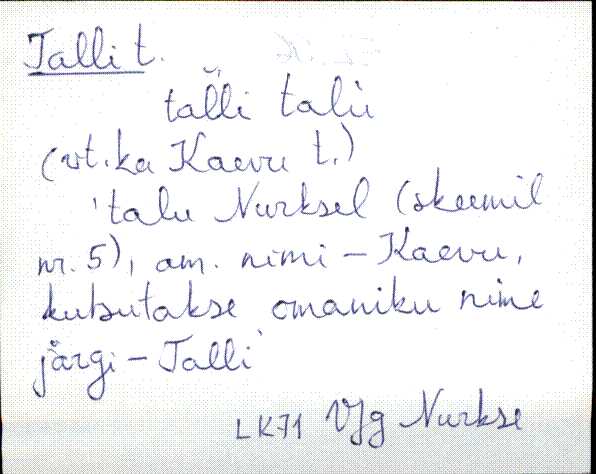 Talli t.
tal̆li talù
(vt. ka Kaevu t.)
'talu Nurksel (skeemil
nr. 5), am. nimi – Kaevu,
kutsutakse omaniku nime
järgi – Talli'
LK71 VJg Nurkse